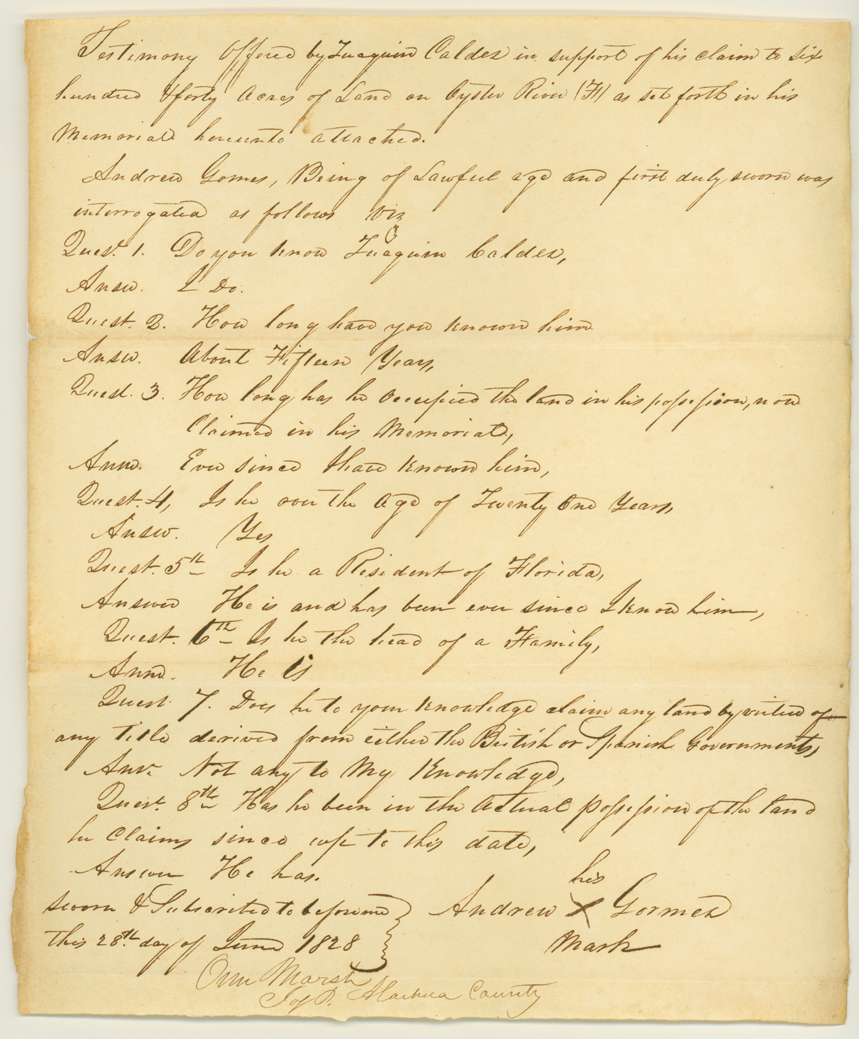 Testimony Offered by Juaquin Caldez in support of his claim to six
hundred & forty Acres of Land on Oyster River (F) as set forth in his
Memorial hereunto attached.
Andrew Gomes, Being of Lawful age and first duly sworn was
interrogated as follows Viz
Quest. 1. Do you know Juaquin Caldez,
Answ. I Do.
Quest. 2. How long have you known him
Answ. About Fifteen Years,
Quest. 3. How long has he Occupied the land in his possession, now
Claimed in his Memorial,
Answ. Ever since I have known him,
Quest. 4, Is he over the age of Twenty One Years,
Answ. Yes
Quest. 5th Is he a Resident of Florida,
Answer He is and has been ever since I know him,
Quest. 6th Is he the head of a Family,
Answ. He is
Quest 7. Does he to your knowledge claim any land by virtue of
any title derived from either the British or Spanish Governments,
Ans. Not any to My Knowledge,
Quest. 8th Has he been in the Actual possession of the land
he claims since up to this date,
Answer He has.
his
sworn & Subscribed to before me Andrew X Gormez
this 28th day of June 1828 Mark
Marsh
J. P. Alachua County